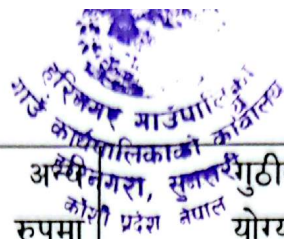 हरिनगर गाउँपालिका
गाउँ कार्यपालिकाको कार्यालय
हरिनगरा, सुनसरी
कोशी प्रदेश नेपाल
गुठी
रुपमा योग्य